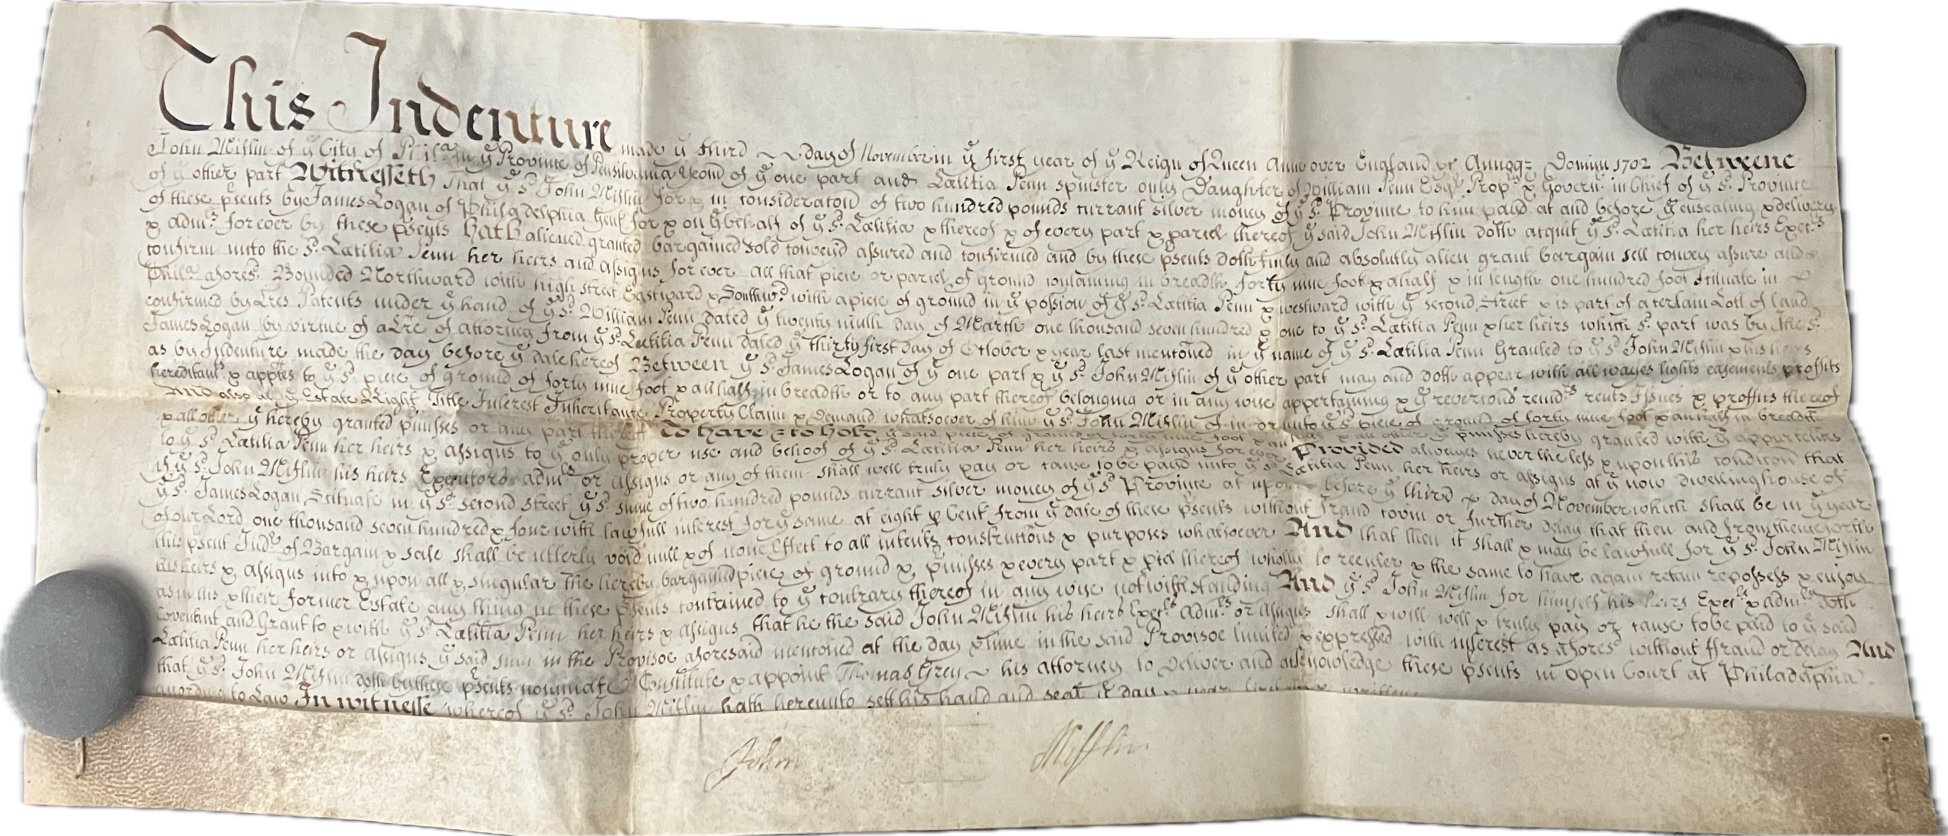 This Indenture made ye third day of November in ye first year of ye Reign of Queen Anne over England &c Annoq; Domini 1702 Betweene
John Mifflin of ye City of Philada in ye Province of Pensilvania Yeoman of ye one part and Lætitia Penn spinster only Daughter of William Penn Esqr Propr & Governr in Chief of ye sd Province
of ye other part Witnesseth That ye sd John Mifflin for & in consideration of two hundred pounds currant silver money of ye sd Province to him paid at and before ye ensealing & delivery
of these psents by James Logan of Philadelphia Gent for & on ye behalf of ye sd Lætitia & thereof & of every part & parcel thereof ye said John Mifflin doth acquit ye sd Lætitia her heirs Execrs
& admrs forever by these psents Hath aliened granted bargained sold conveyed assured and confirmed and by these psents doth fully and absolutely alien grant bargain sell convey assure and
confirm unto the sd Lætitia Penn her heirs and assigns for ever all that piece or parcel of ground containing in breadth forty nine foot & a half & in length one hundred foot scituate in
Philada aforesd Bounded Northward with high street Eastward & Southwd with a piece of ground in ye possion of ye sd Lætitia Penn & westward with ye second street & is part of a certain Lott of land
confirmed by Lres Patents under ye hand of ye sd William Penn dated ye twenty ninth day of March one thousand seven hundred & one to ye sd Lætitia Penn & her heirs which sd part was by the sd
James Logan by virtue of a Lre of attorney from ye sd Lætitia Penn dated ye thirty first day of October & year last mentoned in ye name of ye sd Lætitia Penn Granted to ye sd John Mifflin & his heirs
as by Indenture made the day before ye date hereof Between ye sd James Logan of ye one part & ye sd John Mifflin of ye other part may and doth appear with all wayes lights easements profitts
hereditamts & apptes to ye sd piece of ground of forty nine foot & a half in breadth or to any part thereof belonging or in any wise appertaining & ye reversons remdrs rents Issues & proffits thereof
And also all ye Estate Right Title Interest Inheritance Property Claim & Demand whatsoever of him ye sd John Mifflin of in or unto ye sd piece of ground of forty nine foot & an half in breadth
& all other ye hereby granted pmisses or any part thereof To have & to hold ye said piece of ground of forty nine foot & an half & all other ye pmisses hereby granted with ye appurtences
to ye sd Lætitia Penn her heirs & assigns to ye only proper use and behoof of ye sd Lætitia Penn her heirs & assigns for ever Provided alwayes never the less & upon this condicon that
if ye sd John Mifflin his heirs Executors admrs or assigns or any of them shall well & truly pay or cause to be paid unto ye sd Lætitia Penn her heirs or assigns at ye now dwelling house of
ye sd James Logan Scituate in ye sd second street ye sd summe of two hundred pounds currant silver money of ye sd Province at upon or before ye third day of November which shall be in ye year
of our Lord one thousand seven hundred & four with lawfull interest for ye same at eight p Cent from ye date of these psents without fraud covin or further delay that then and from thenceforth
this psent Indre of Bargain & sale shall be utterly void null & of none Effect to all intents constructions & purposes whatsoever And that then it shall & may be lawfull for ye sd John Mifflin
his heirs & assigns into & upon all & singular the hereby bargained piece of ground & pmisses & every part & pcel thereof wholly to reenter & the same to have again retain repossess & enjoy
as in his & their former Estate any thing in these psents contained to ye contrary thereof in any wise notwithstanding And ye sd John Mifflin for himself his heirs Execrs & admrs doth
Covenant and Grant to & with ye sd Lætitia Penn her heirs & assigns that he the said John Mifflin his heirs Execrs admrs or assigns shall & will well & truly pay or cause to be paid to ye said
Lætitia Penn her heirs or assigns ye said sum in the Provisoe aforesaid mentoned at the day & time in the said Provisoe limited & expressed with interest as aforesd without ffraud or delay And
that ye sd John Mifflin doth by these psents nominate Constitute & appoint Thomas Grey his attorney to Deliver and acknowledge these psents in open Court at Philadelphia
according to Law In witnesse whereof ye sd John Mifflin hath hereunto sett his hand and seal ye day & year first written
John Mifflin